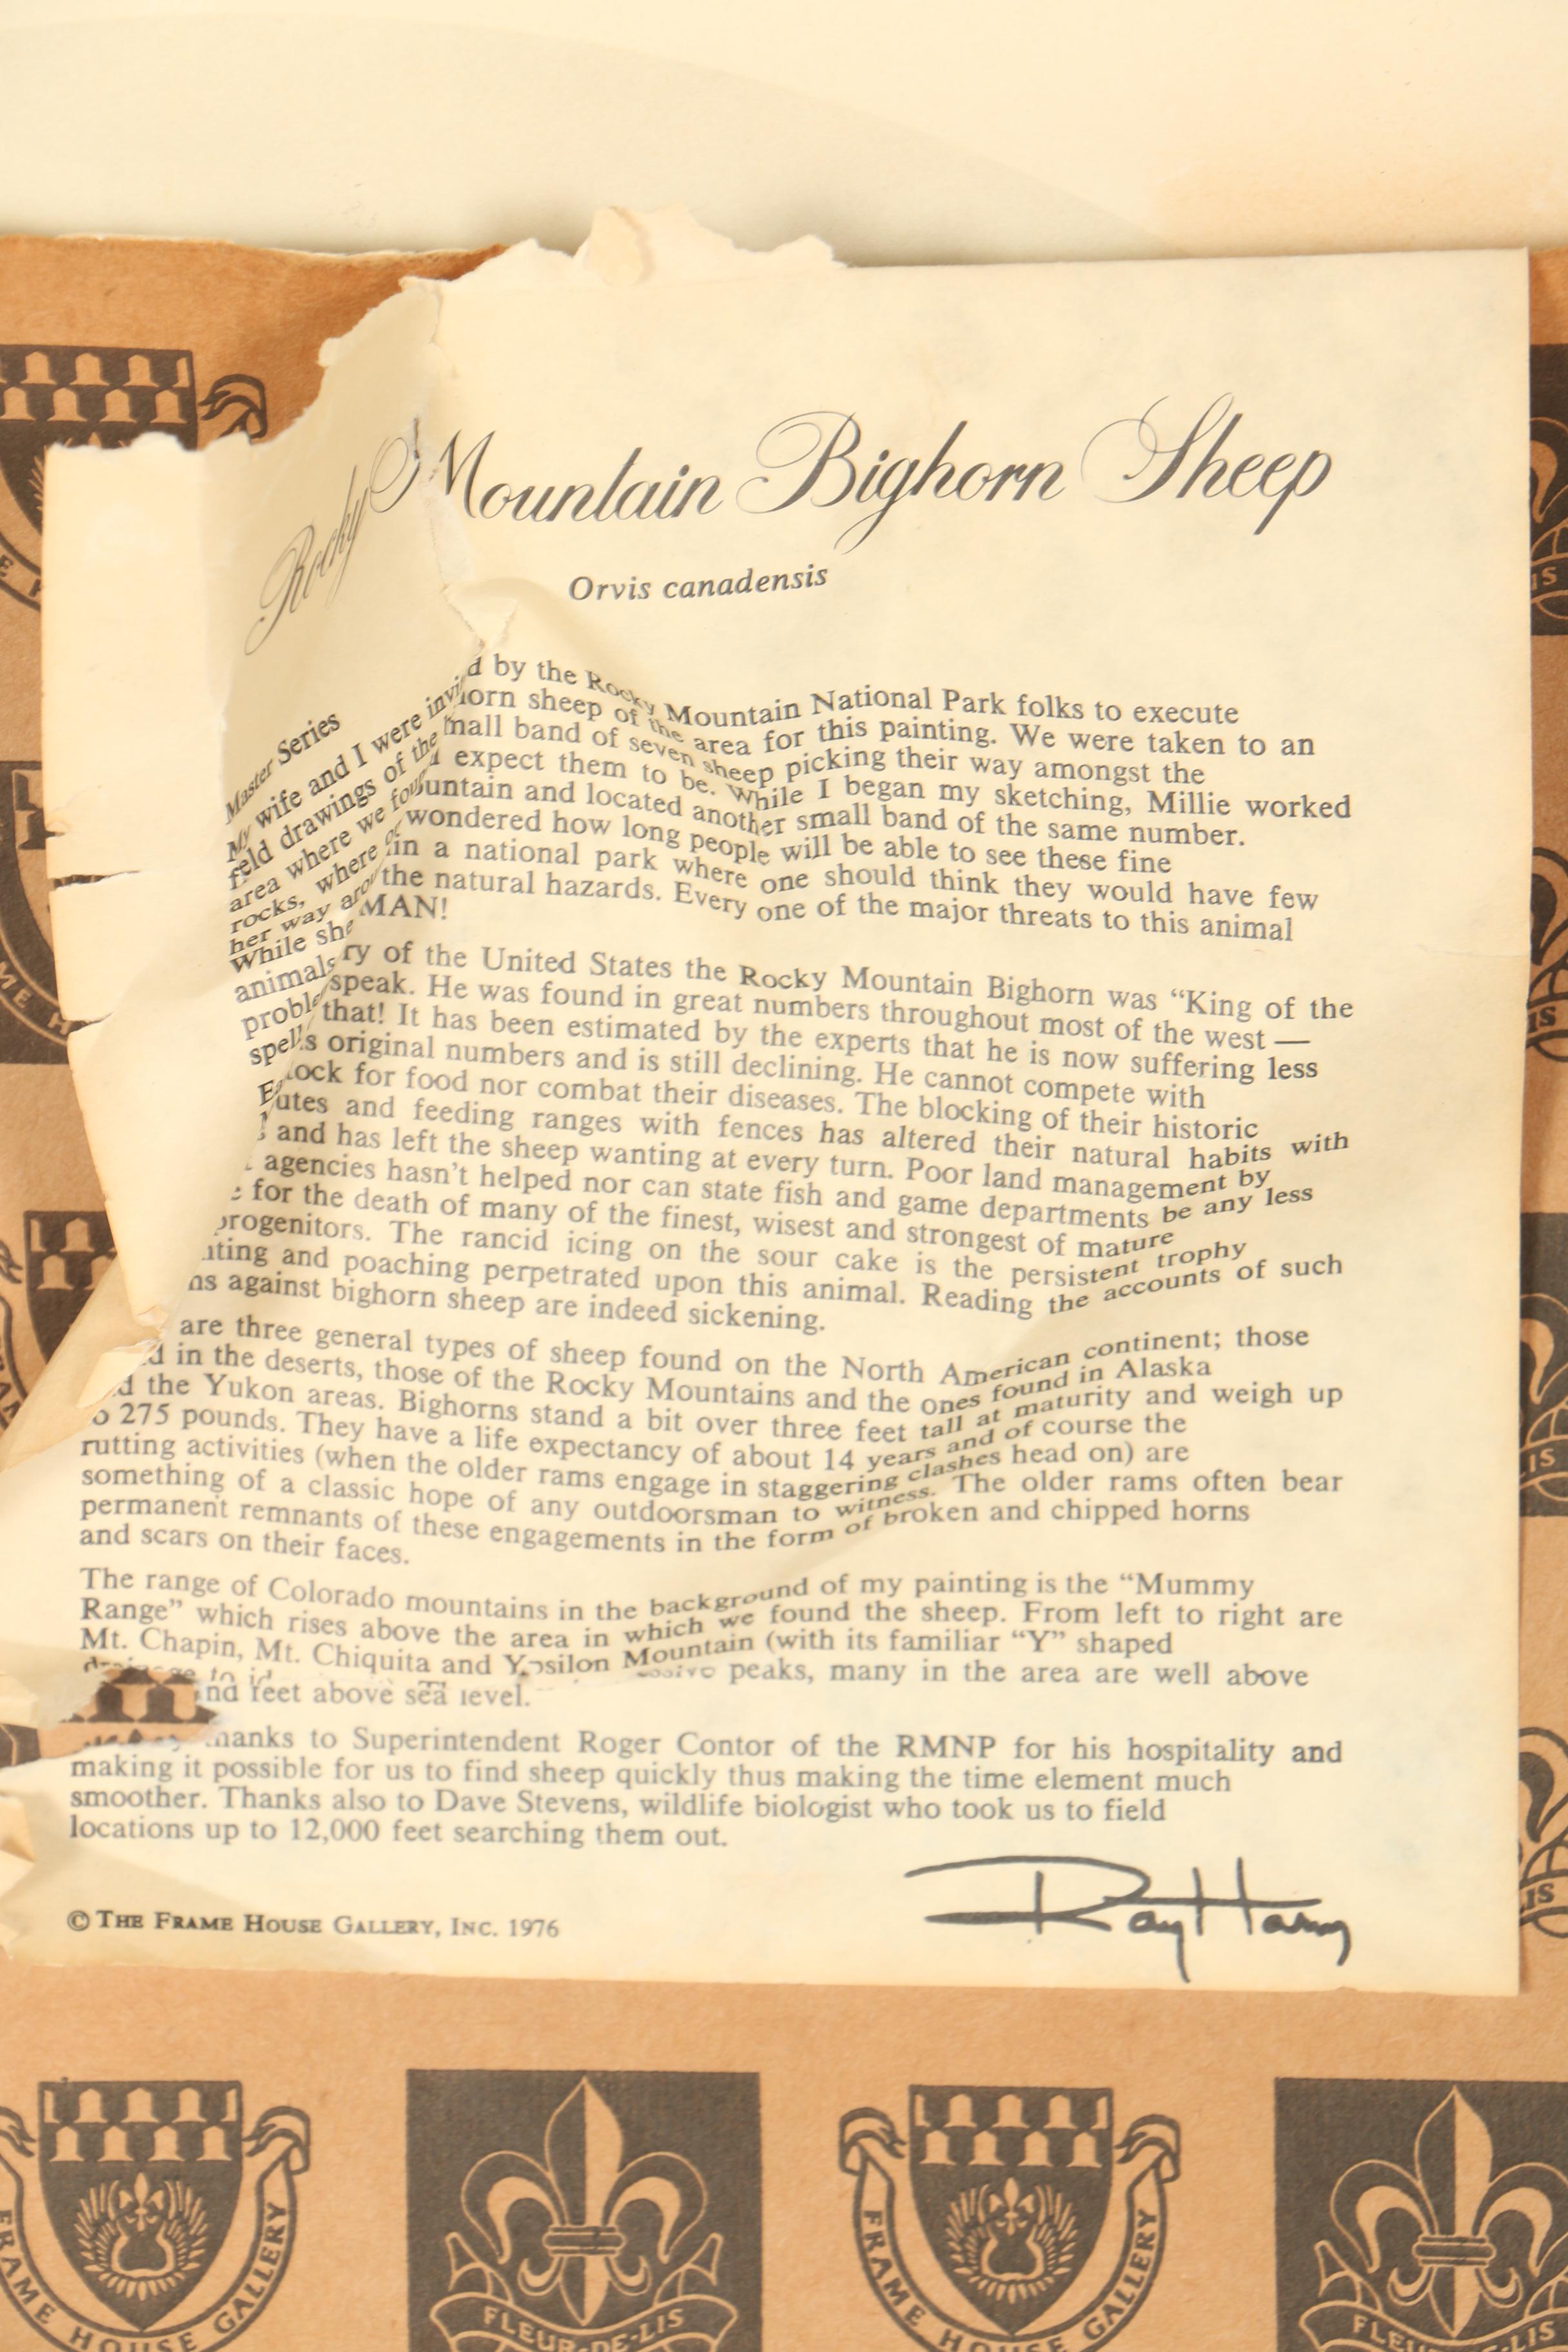 Rocky Mountain Bighorn Sheep
Orvis canadensis
Master Series
My wife and I were invi d by the Rocky Mountain National Park folks to execute
field drawings of the horn sheep of the area for this painting. We were taken to an
area where we found mall band of seven sheep picking their way amongst the
rocks, where expect them to be. While I began my sketching, Millie worked
her way arou untain and located another small band of the same number.
While she wondered how long people will be able to see these fine
animals in a national park where one should think they would have few
proble the natural hazards. Every one of the major threats to this animal
spells MAN!
Ea ry of the United States the Rocky Mountain Bighorn was “King of the
speak. He was found in great numbers throughout most of the west —
that! It has been estimated by the experts that he is now suffering less
s original numbers and is still declining. He cannot compete with
ock for food nor combat their diseases. The blocking of their historic
utes and feeding ranges with fences has altered their natural habits with
and has left the sheep wanting at every turn. Poor land management by
agencies hasn’t helped nor can state fish and game departments be any less
for the death of many of the finest, wisest and strongest of mature
progenitors. The rancid icing on the sour cake is the persistent trophy
nting and poaching perpetrated upon this animal. Reading the accounts of such
ns against bighorn sheep are indeed sickening.
are three general types of sheep found on the North American continent; those
d in the deserts, those of the Rocky Mountains and the ones found in Alaska
d the Yukon areas. Bighorns stand a bit over three feet tall at maturity and weigh up
o 275 pounds. They have a life expectancy of about 14 years and of course the
rutting activities (when the older rams engage in staggering clashes head on) are
something of a classic hope of any outdoorsman to witness. The older rams often bear
permanent remnants of these engagements in the form of broken and chipped horns
and scars on their faces.
The range of Colorado mountains in the background of my painting is the “Mummy
Range” which rises above the area in which we found the sheep. From left to right are
Mt. Chapin, Mt. Chiquita and Ypsilon Mountain (with its familiar “Y” shaped
drainage to id ssive peaks, many in the area are well above
nd feet above sea level.
hanks to Superintendent Roger Contor of the RMNP for his hospitality and
making it possible for us to find sheep quickly thus making the time element much
smoother. Thanks also to Dave Stevens, wildlife biologist who took us to field
locations up to 12,000 feet searching them out.
Ray Harm
© THE FRAME HOUSE GALLERY, INC. 1976
FRAME HOUSE GALLERY
FLEUR-DE-LIS
FRAME HOUSE GALLERY
FLEUR-DE-LIS